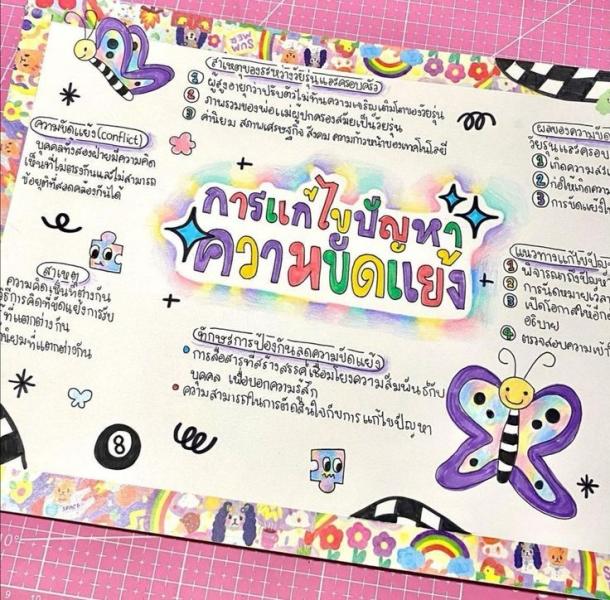 สาเหตุของระหว่างวัยรุ่นและครอบครัว
1 ผู้สูงอายุกว่าปรับตัวไม่ทันความเจริญเติบโตของวัยรุ่น
2 ภาพรวมของพ่อแม่ผู้ปกครองสมัยเป็นวัยรุ่น
3 ค่านิยม สภาพเศรษฐกิจ สังคม ความก้าวหน้าของเทคโนโลยี
ความขัดแย้ง(Conflict)
บุคคลทั้งสองฝ่ายมีความคิด
เห็นที่ไม่ตรงกันและไม่สามารถ
ข้อยุติที่สอดคล้องกันได้
ผลของความขัด
วัยรุ่นและครอบ
1 เกิดความส
2 ก่อให้เกิดควา
3 การขัดแย้งใ
การแก้ไขปัญหา
ความขัดแย้ง
สาเหตุ
ความคิดเห็นที่ต่างกัน
วิธีการคิดที่ขัดแย้งการรับ
ที่แตกต่างกัน
นิยมที่แตกต่างกัน
แนวทางแก้ไขปัญ
1 พิจารณาถึงปัญห
2 การนัดหมายเวล
3 เปิดโอกาสให้อีก
อธิบาย
4 ตรวจสอบความเข้
ทักษะการป้องกันลดความขัดแย้ง
การสื่อสารที่สร้างสรรค์เชื่อมโยงความสัมพันธ์กับ
บุคคล เพื่อบอกความรู้สึก
ความสามารถในการตัดสินใจกับการแก้ไขปัญหา
8